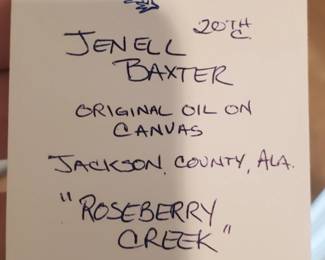 20TH C
JENELL
BAXTER
ORIGINAL OIL ON
CANVAS
JACKSON COUNTY, ALA.
"ROSEBERRY
CREEK"